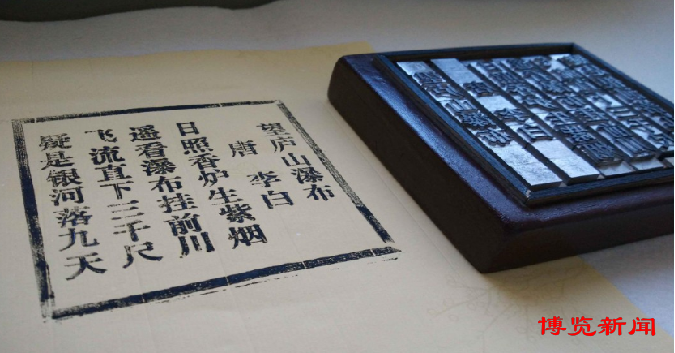 望庐山瀑布
唐 李白
日照香炉生紫烟
遥看瀑布挂前川
飞流直下三千尺
疑是银河落九天
博览新闻